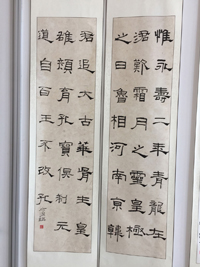 惟永壽二年青龍在
涒歎霜月之靈皇極
之日魯相河南京韓
君追太古華胥生皇
雄顏育孔寶俱制元
道自百王不改孔